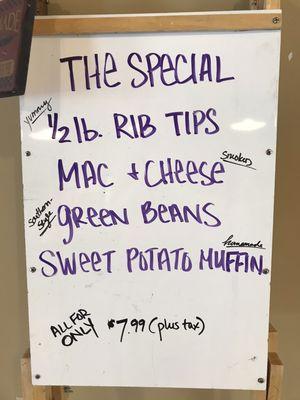 THE SPECIAL
yummy
1/2 lb. RIB TIPS
MAC + CHEESE
Smokers
Southern-Style
GREEN BEANS
homemade
SWEET POTATO MUFFIN
ALL FOR ONLY $7.99 (plus tax)